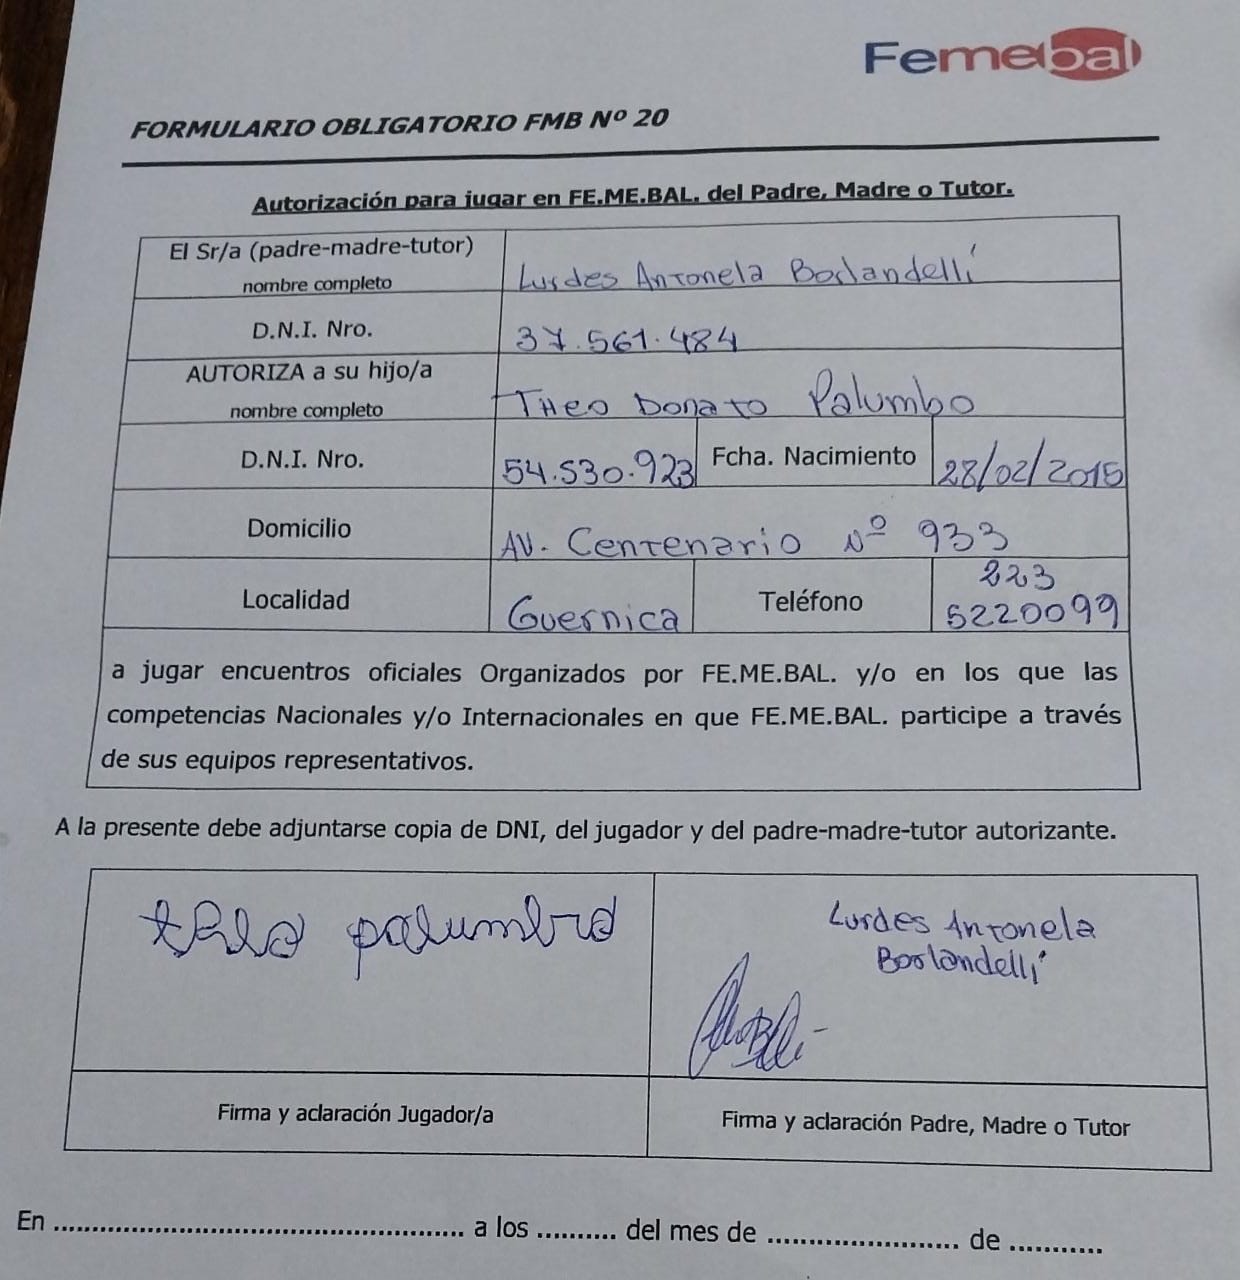 Femebal
FORMULARIO OBLIGATORIO FMB Nº 20
Autorización para jugar en FE.ME.BAL. del Padre, Madre o Tutor.
El Sr/a (padre-madre-tutor)
nombre completo
Lurdes Antonela Borlandelli
D.N.I. Nro.
37.561.484
AUTORIZA a su hijo/a
nombre completo
THeo Donato Palumbo
D.N.I. Nro.
54.530.923
Fcha. Nacimiento
28/02/2015
Domicilio
AV. Centenario Nº 933
Localidad
Guernica
Teléfono
223
5220099
a jugar encuentros oficiales Organizados por FE.ME.BAL. y/o en los que las
competencias Nacionales y/o Internacionales en que FE.ME.BAL. participe a través
de sus equipos representativos.
A la presente debe adjuntarse copia de DNI, del jugador y del padre-madre-tutor autorizante.
theo palumbo
Lurdes Antonela
Borlandelli
Firma y aclaración Jugador/a
Firma y aclaración Padre, Madre o Tutor
En ............................................ a los .......... del mes de ...................... de ...........